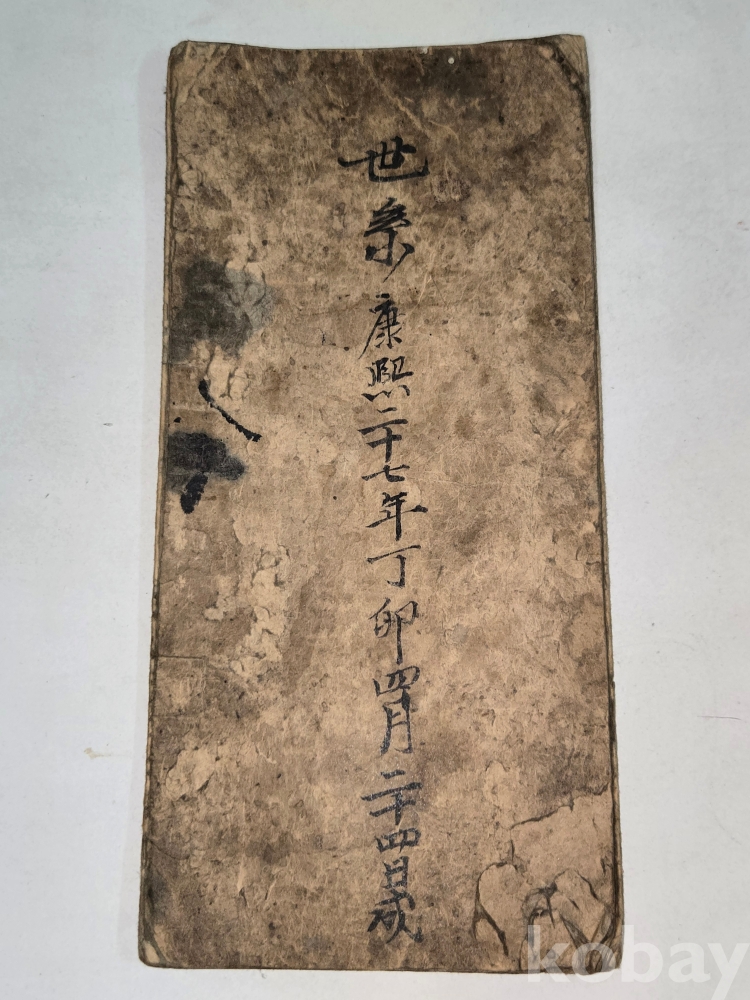 世系 康熙二十七年丁卯四月二十四日成
kobay